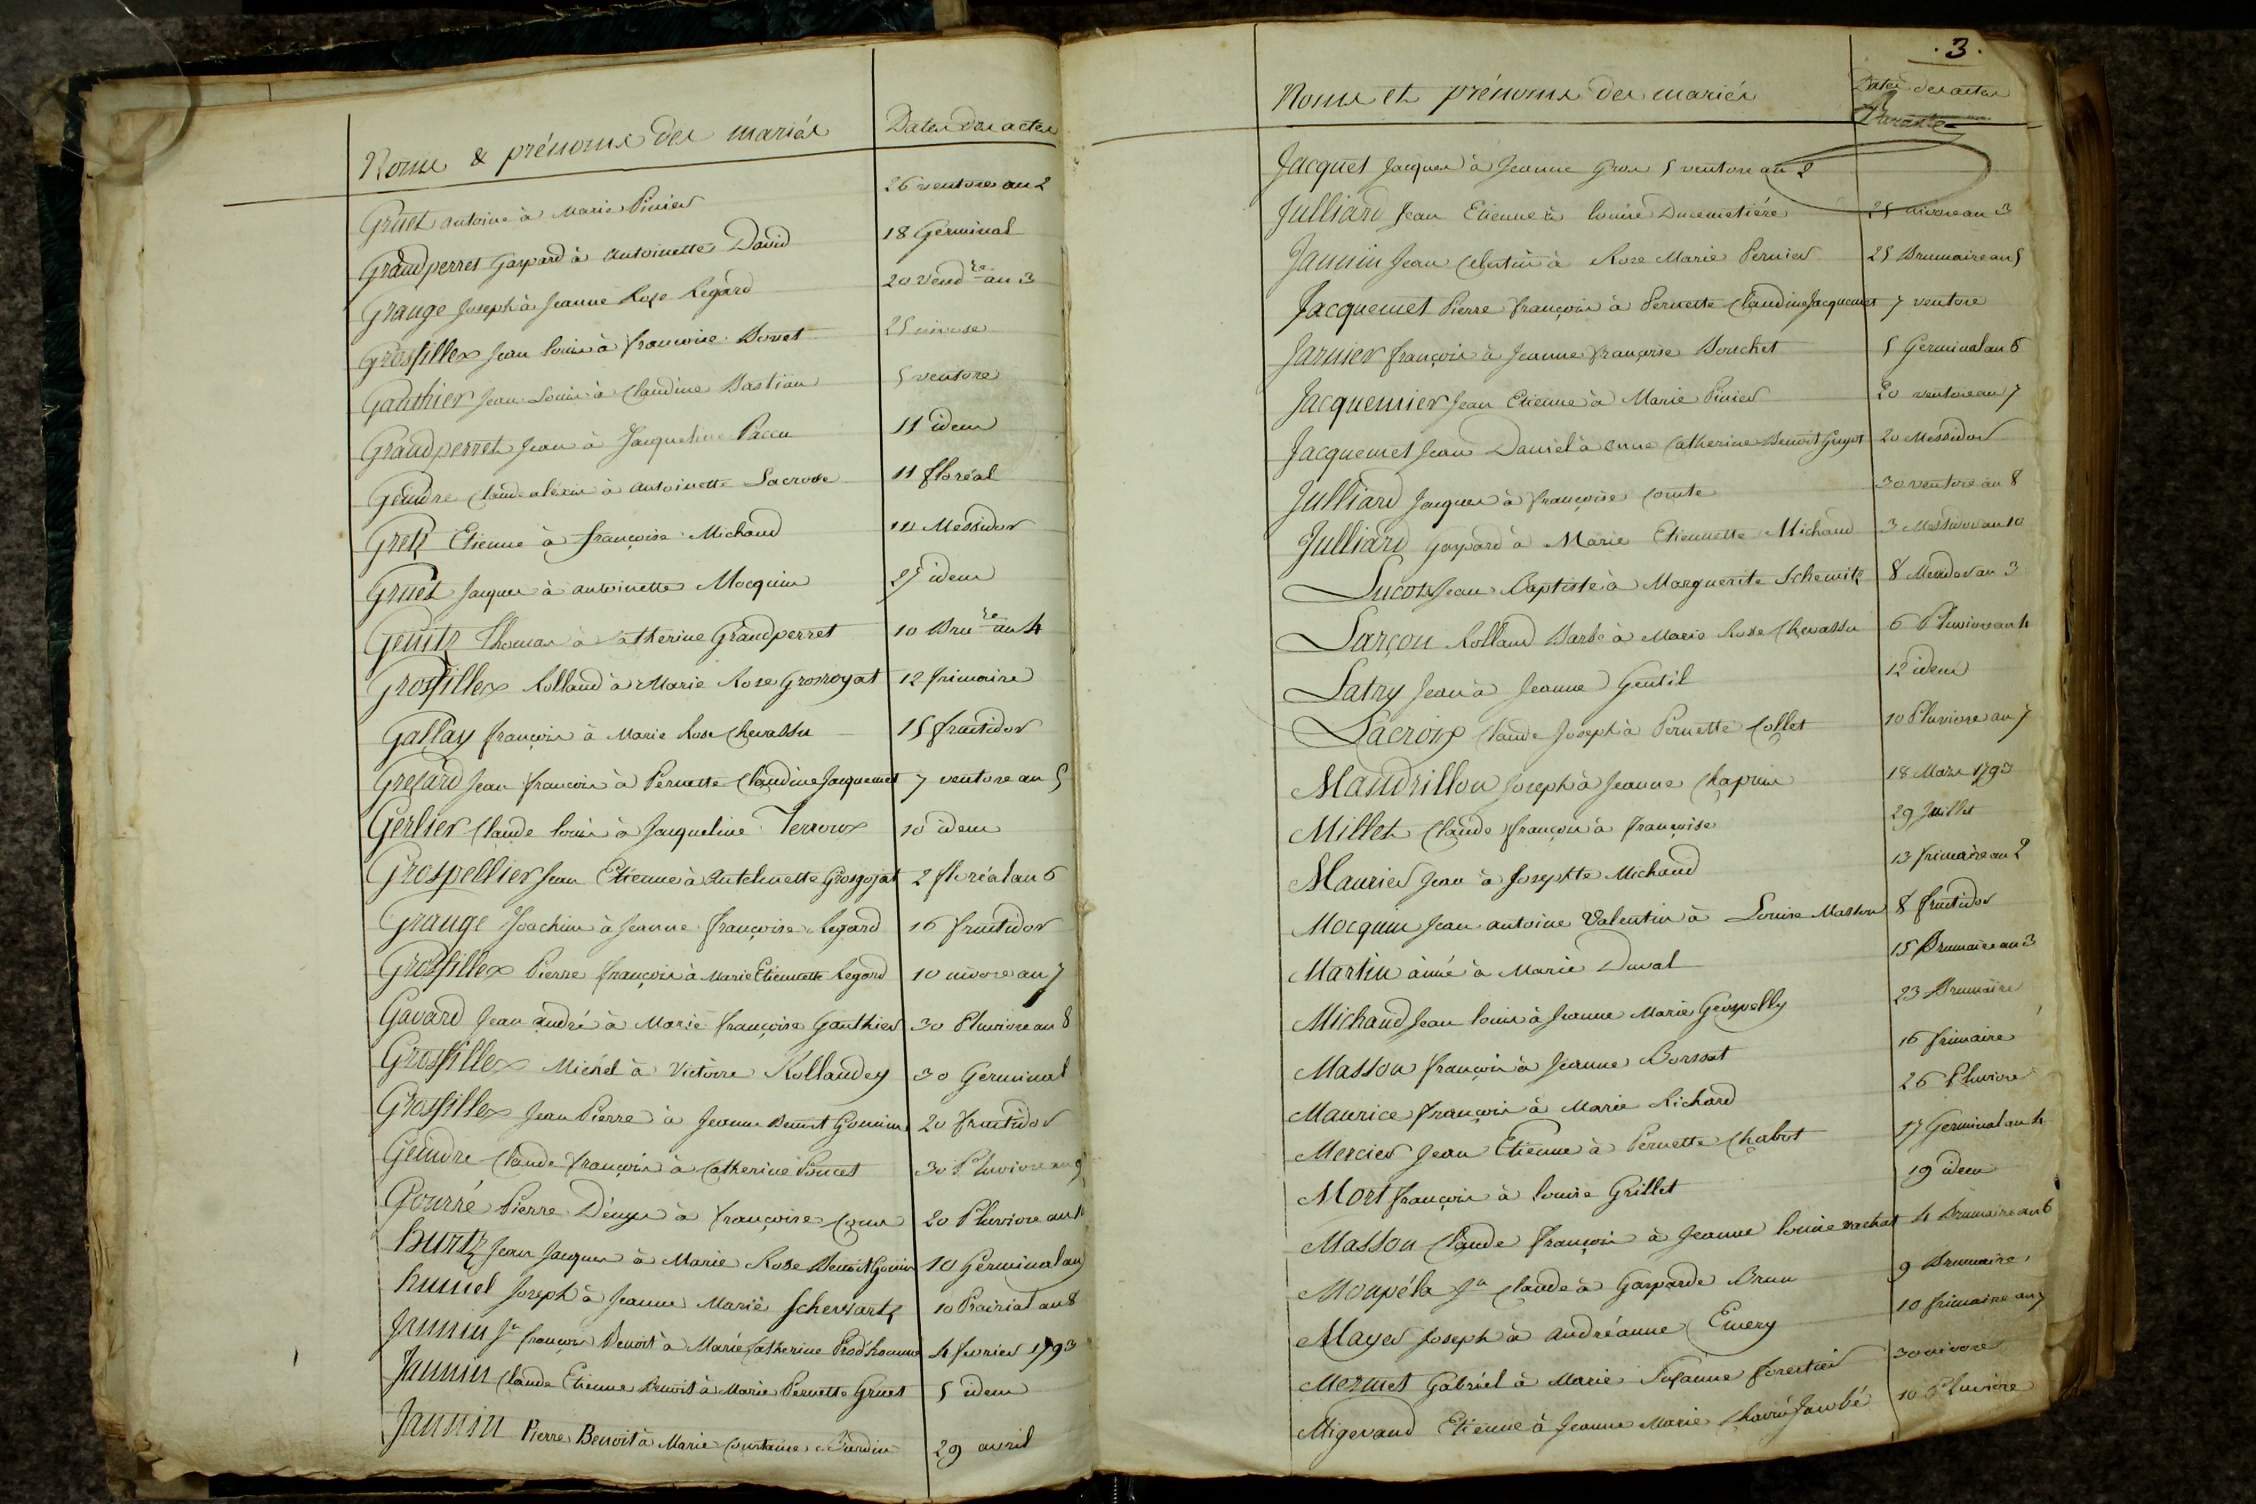 Noms & prénoms des mariés Dates des actes
Gruet antoine à Marie Pinier 26 ventose an 2
Grandperret Gaspard à Antoinette David 18 Germinal
Grange Joseph à Jeanne Rose Regard 20 Vend.re an 3
Grosfillex Jean louis à françoise Bonet 25 nivose
Gauthier Jean Louis à Claudine Bastian 5 ventose
Grandperret Jean à Jacqueline Paccu 11 idem
Geindre Claude aléxis à Antoinette Lacroix 11 floréal
Gretz Etienne à françoise Michaud 14 Messidor
Gruet Jacques à antoinette Mocquin 25 idem
Gentz Thomas à Catherine Grandperret 10 Bru.re an 4
Grosfillex Rolland à Marie Rose Grosroyat 12 frimaire
Gallay françois à Marie Rose Chevassu 15 fructidor
Gresard Jean françois à Pernette Claudine Jacquemet 7 ventose an 5
Gerlier Claude louis à Jacqueline Terroux 10 idem
Grospellier Jean Etienne à Antelmette Grosgojat 2 floréal an 6
Grange Joachim à Jeanne françoise Regard 16 fructidor
Grosfillex Pierre françois à Marie Etiennette Regard 10 nivose an 7
Gavard Jean andré à Marie françoise Gauthier 30 Pluviose an 8
Grosfillex Michel à Victoire Rollandey 30 Germinal
Grosfillex Jean Pierre à Jeanne Benoit Gounin 20 fructidor
Geindre Claude françois à Catherine Poncet 30 Pluviose an 9
Gourré Pierre Dénys à françoise 20 Pluviose an 10
hurtz Jean Jacques à Marie Rose Benoit Gonin 10 Germinal an
humel Joseph à Jeanne Marie Scheswartz 10 Prairial an 8
Jannin Jn françois Benoit à Marie Catherine Prodhomme 4 fevrier 1793
Jannin Claude Etienne Benoit à Marie Pernette Gruet 5 idem
Jannin Pierre Benoit à Marie Constance Bardin 29 avril
.3.
Noms et prénoms des mariés Dates des actes
Jacquet Jacques à Jeanne Gros 5 ventose an 2
Julliard Jean Etienne à louise Ducimetiére 25 nivose an 3
Jannin Jean Celestin à Rose Marie Pernier 25 Brumaire an 5
Jacquemet Pierre françois à Pernette Claudine Jacquemet 7 ventose
Jarnier françois à Jeanne françoise Bouchet 5 Germinal an 6
Jacquemier Jean Etienne à Marie Pinier 20 ventose an 7
Jacquemet Jean Daniel à anne Catherine Benoit Guyot 20 Messidor
Julliard Jacques à françoise Comte 30 ventose an 8
Julliard Gaspard à Marie Etiennette Michaud 3 Messidor an 10
Lucotz Jean Baptiste à Marguerite Schemitz 8 Messidor an 3
Larçon Rolland Barbe à Marie Rose Chevassu 6 Pluviose an 4
Latry Jean à Jeanne Gentil 12 idem
Lacroix Claude Joseph à Pernette Collet 10 Pluviose an 7
Mandrillon Joseph à Jeanne Chapuis 18 Mars 1793
Millet Claude françois à françoise 29 Juillet
Maurier Jean à Josephte Michaud 13 frimaire an 2
Mocquin Jean antoine Valentin à Louise Masson 8 fructidor
Martin aimé à Marie Duval 15 Brumaire an 3
Michaud Jean louis à Jeanne Marie Grospelly 23 Brumaire
Masson françois à Jeanne Borssat 16 frimaire
Maurice françois à Marie Richard 26 Pluviose
Mercier Jean Etienne à Pernette Chabot 17 Germinal an 4
Mort françois à louise Grillet 19 idem
Masson Claude françois à Jeanne louise vachat 4 Brumaire an 6
Monpéla Jn Claude à Gasparde Brun 9 Brumaire
Mayer Joseph à andréanne Emery 10 frimaire an 7
Mermet Gabriel à Marie Susanne forestier 30 nivose
Migerand Etienne à Jeanne Marie Jambé 10 Pluviose